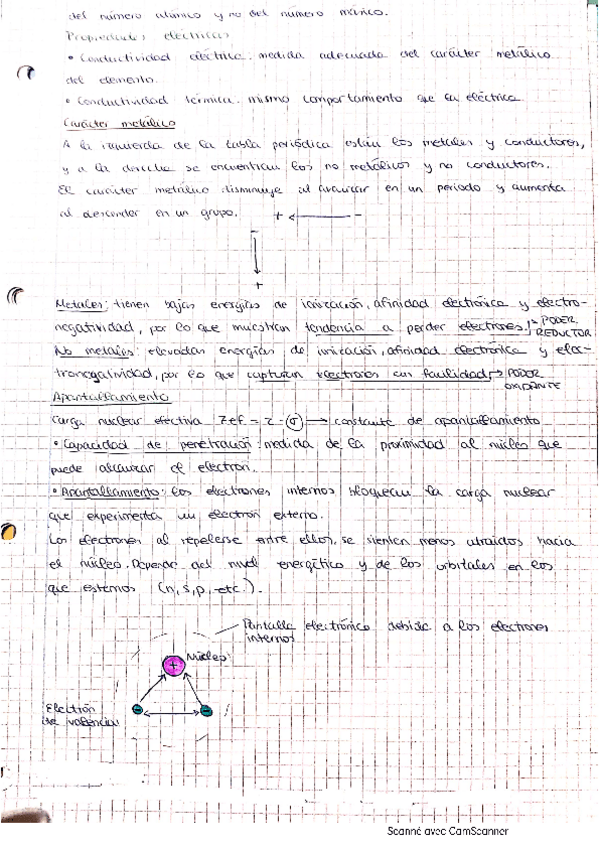 del número atómico y no del número másico.
Propiedades eléctricas
• Conductividad eléctrica: medida adecuada del carácter metálico
del elemento.
• Conductividad térmica: mismo comportamiento que la eléctrica
Carácter metálico
A la izquierda de la tabla periódica están los metales y conductores,
y a la derecha se encuentran los no metálicos y no conductores.
El carácter metálico disminuye al avanzar en un periodo y aumenta
al descender en un grupo. + ← −
−
+
Metales: tienen bajas energías de ionización, afinidad electrónica y electro-
negatividad, por lo que muestran tendencia a perder electrones, → PODER
REDUCTOR
No metales: elevadas energías de ionización, afinidad electrónica y elec-
tronegatividad, por lo que capturan electrones con facilidad → PODER
OXIDANTE
Apantallamiento
Carga nuclear efectiva Zef = Z - σ → constante de apantallamiento
• Capacidad de penetración: medida de la proximidad al núcleo que
puede alcanzar el electrón.
• Apantallamiento: los electrones internos bloquean la carga nuclear
que experimenta un electrón externo.
Los electrones al repelerse entre ellos, se sienten menos atraídos hacia
el núcleo. Depende del nivel energético y de los orbitales en los
que estemos (n, s, p, etc.).
Pantalla electrónica debida a los electrones
internos
Núcleo:
+
Electrón
de valencia
−
−
Scanné avec CamScanner